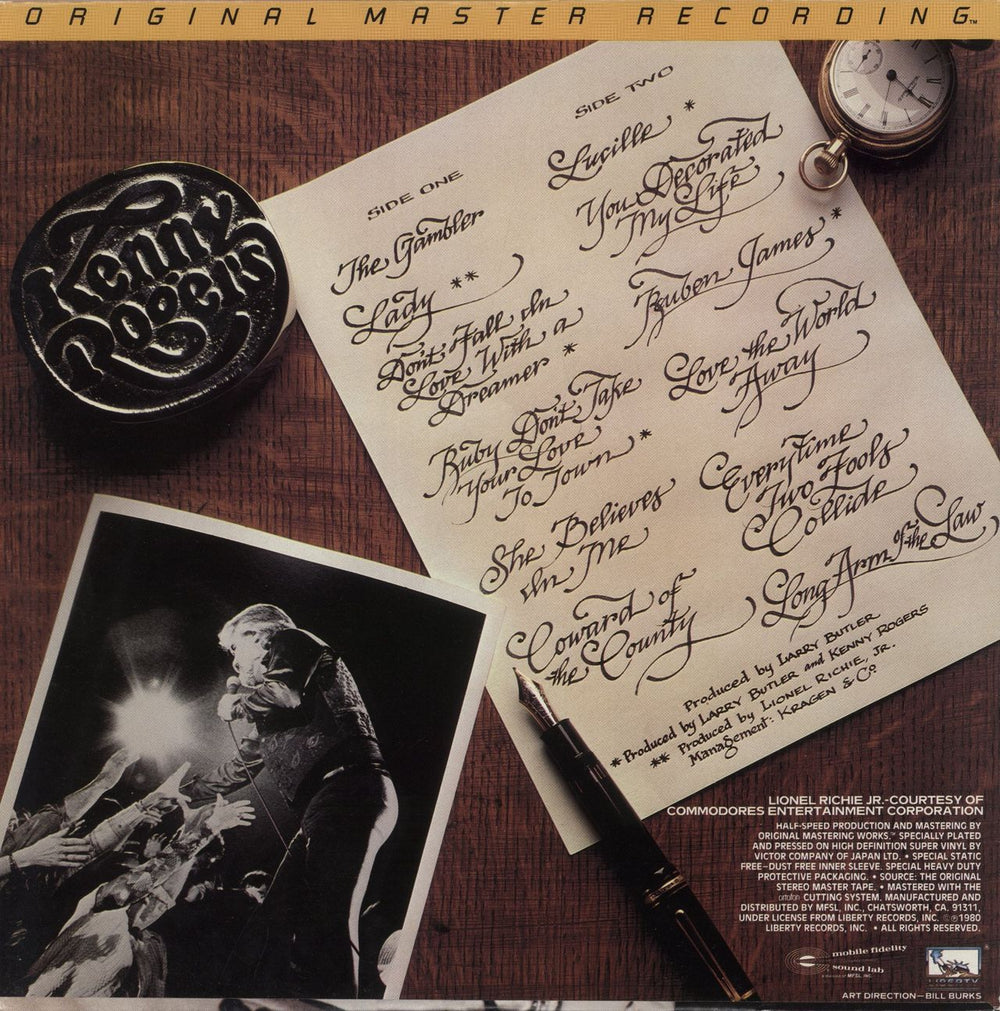 ORIGINAL MASTER RECORDING™
Kenny
Rogers
SIDE ONE
The Gambler
Lady **
Don't Fall In
Love With a
Dreamer *
Ruby Don't Take
Your Love
To Town *
She Believes
In Me
Coward of
the County
SIDE TWO
Lucille *
You Decorated
My Life
Reuben James *
Love the World
Away
Everytime
Two Fools
Collide
Long Arm of the Law
Produced by LARRY BUTLER
* Produced by LARRY BUTLER and KENNY ROGERS
** Produced by LIONEL RICHIE, JR.
Management: KRAGEN & Co
LIONEL RICHIE JR.-COURTESY OF
COMMODORES ENTERTAINMENT CORPORATION
HALF-SPEED PRODUCTION AND MASTERING BY
ORIGINAL MASTERING WORKS.™ SPECIALLY PLATED
AND PRESSED ON HIGH DEFINITION SUPER VINYL BY
VICTOR COMPANY OF JAPAN LTD. • SPECIAL STATIC
FREE-DUST FREE INNER SLEEVE. SPECIAL HEAVY DUTY
PROTECTIVE PACKAGING. • SOURCE: THE ORIGINAL
STEREO MASTER TAPE. • MASTERED WITH THE
ortofon CUTTING SYSTEM. MANUFACTURED AND
DISTRIBUTED BY MFSL, INC., CHATSWORTH, CA. 91311,
UNDER LICENSE FROM LIBERTY RECORDS, INC. ©℗1980
LIBERTY RECORDS, INC. • ALL RIGHTS RESERVED.
mobile fidelity
sound lab
LIBERTY
ART DIRECTION—BILL BURKS